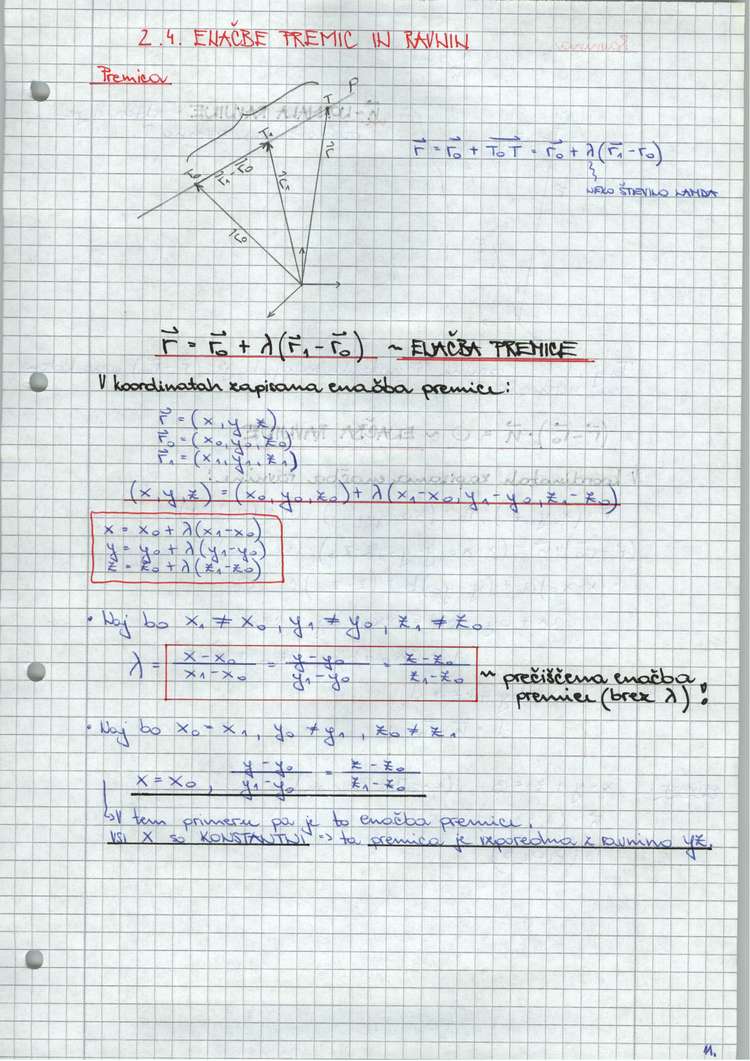 2.4. ENAČBE PREMIC IN RAVNIN
Premica
P
T
T₁
T₀
r⃗₁-r⃗₀
r⃗
r⃗₁
r⃗₀
r⃗ = r⃗₀ + T₀T⃗ = r⃗₀ + λ(r⃗₁-r⃗₀)
NEKO ŠTEVILO LAMDA
r⃗ = r⃗₀ + λ(r⃗₁-r⃗₀) ~ ENAČBA PREMICE
V koordinatah zapisana enačba premice:
r⃗ = (x, y, z)
r⃗₀ = (x₀, y₀, z₀)
r⃗₁ = (x₁, y₁, z₁)
(x, y, z) = (x₀, y₀, z₀) + λ(x₁-x₀, y₁-y₀, z₁-z₀)
x = x₀ + λ(x₁-x₀)
y = y₀ + λ(y₁-y₀)
z = z₀ + λ(z₁-z₀)
• Naj bo x₁ ≠ x₀, y₁ ≠ y₀, z₁ ≠ z₀
λ = (x-x₀)/(x₁-x₀) = (y-y₀)/(y₁-y₀) = (z-z₀)/(z₁-z₀) ~ prečiščena enačba
premice (brez λ)!
• Naj bo x₀ = x₁, y₀ ≠ y₁, z₀ ≠ z₁
x = x₀, (y-y₀)/(y₁-y₀) = (z-z₀)/(z₁-z₀)
↳ V tem primeru pa je to enačba premice.
VSI X so KONSTANTNI => ta premica je vzporedna z ravnino yz.
11.